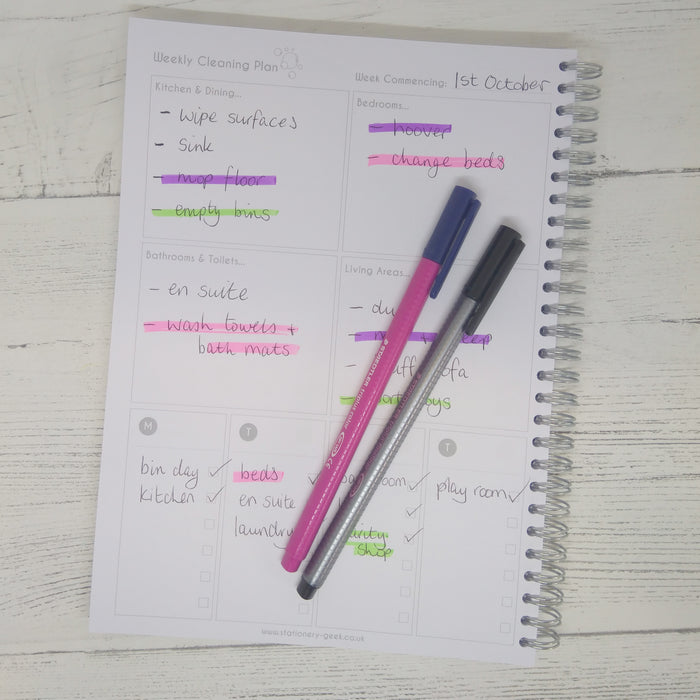 Weekly Cleaning Plan
Week Commencing: 1st October
Kitchen & Dining...
- wipe surfaces
- sink
- mop floor
- empty bins
Bedrooms...
- hoover
- change beds
Bathrooms & Toilets...
- en suite
- wash towels +
bath mats
Living Areas...
M
bin day
kitchen
T
beds
en suite
laundry
shop
T
play room
STAEDTLER triplus color
www.stationery-geek.co.uk